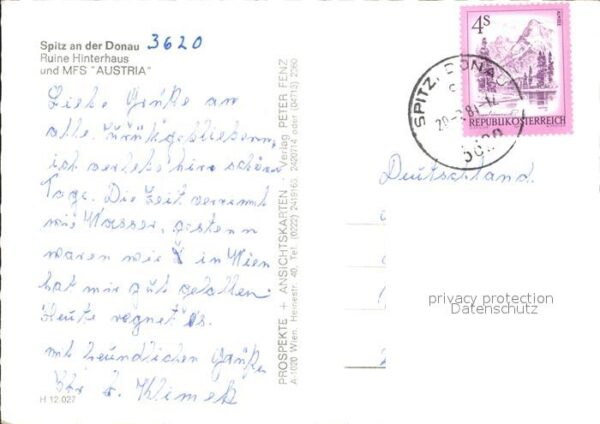 Spitz an der Donau 3620
Ruine Hinterhaus
und MFS "AUSTRIA"
Liebe Grüße an
alle Zurückgebliebenen,
ich verlebe hier schöne
Tage. Die Zeit verrennt
wie Wasser, gestern
waren wir in Wien
hat mir gut gefallen.
Heute regnet es.
mit freundlichen Grüße
Ihr Klimek
H 12 027
PROSPEKTE + ANSICHTSKARTEN · Verlag PETER FENZ
A-1020 Wien, Heinestr. 40, Tel. (0222) 2419162
4S
REPUBLIK ÖSTERREICH
SPITZ, DONAU
Deutschland.
privacy protection
Datenschutz